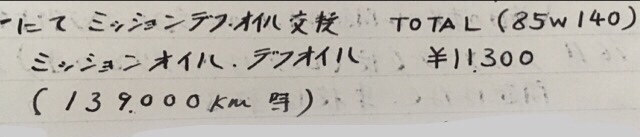 ーにて ミッションデフ.オイル交換 TOTAL (85W140)
ミッションオイル.デフオイル ¥11.300
(139.000km時)